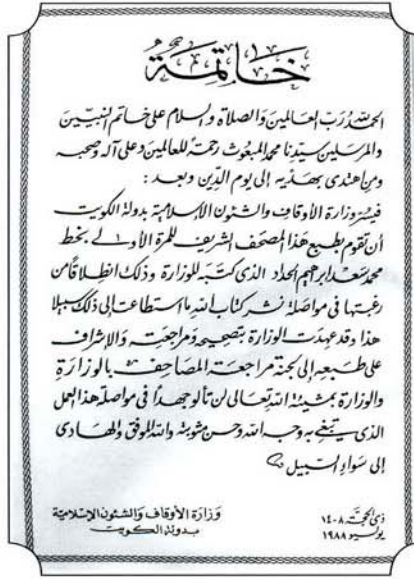 خاتمة
الحمد لله رب العالمين والصلاة والسلام على خاتم النبيين
والمرسلين سيدنا محمد المبعوث رحمة للعالمين وعلى آله وصحبه
ومن اهتدى بهديه إلى يوم الدين وبعد :
فيسر وزارة الأوقاف والشئون الإسلامية بدولة الكويت
أن تقوم بطبع هذا المصحف الشريف للمرة الأولى بخط
محمد سعد إبراهيم الحداد الذى كتبه للوزارة وذلك انطلاقا من
رغبتها فى مواصلة نشر كتاب الله ما استطاعت إلى ذلك سبيلا
هذا وقد عهدت الوزارة بتصحيحه ومراجعته والإشراف
على طبعه إلى لجنة مراجعة المصاحف بالوزارة
والوزارة بمشيئة الله تعالى لن تألو جهدا فى مواصلة هذا العمل
الذى يبتغى به وجه الله وحسن مثوبته والله الموفق والهادى
إلى سواء السبيل
ذى الحجة ١٤٠٨
يوليو ١٩٨٨
وزارة الأوقاف والشئون الإسلامية
بدولة الكويت